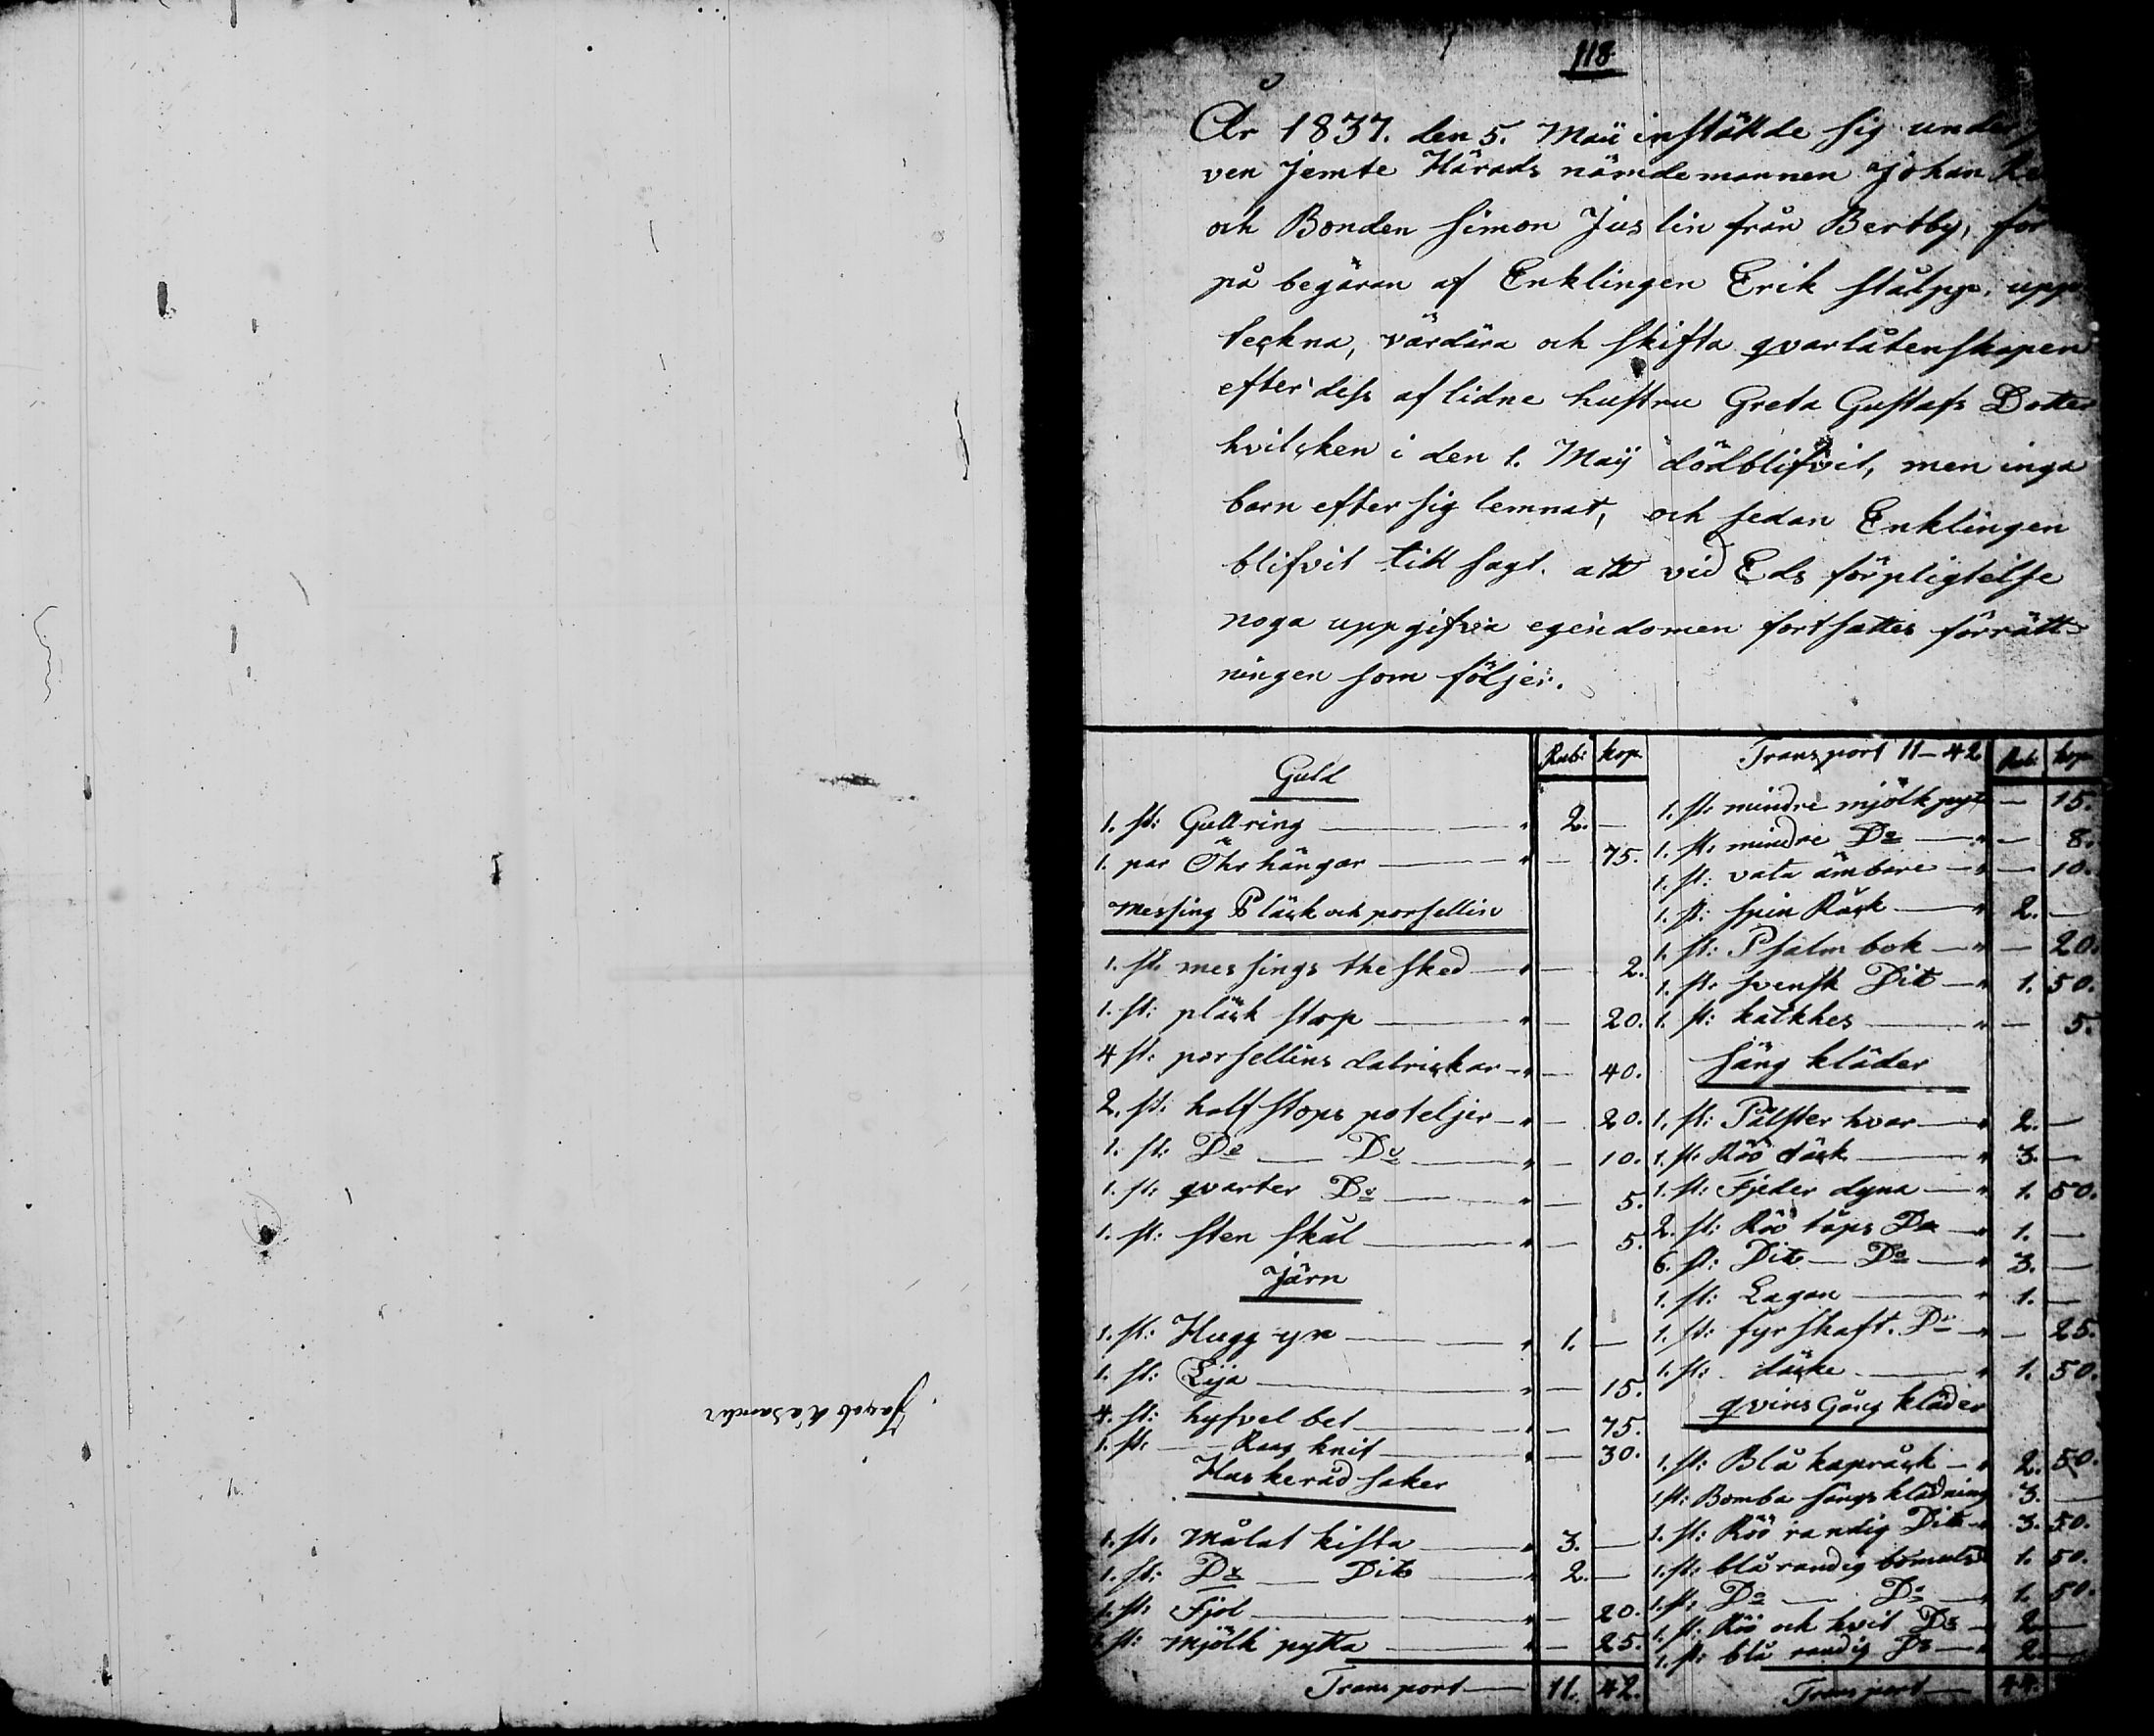 118
År 1837. den 5. Maii instälde sig under
ven Jemte Härads nämdemannen Johan
och Bonden Simon Juslin från Bertby, för
på begäran af Enklingen Erik Stålpp, upp
teckna, värdära och skifta qvarlåtenskapen
efter dess aflidne hustru Greta Gustafs Dotter
hvilcken i den 1. Maij dödblifvit, men inga
barn efter sig lemnat, och sedan Enklingen
blifvit till sagt. att vid Eds förpligtelse
noga uppgifva egendomen fortsattes förrätt-
ningen som följer.
Rub: kop.
Guld
1. st: Gullring — 2. —
1. par Öhrhängar — — 75.
Messing Pläck och porsellin
1. st. messings thesked — — 2.
1. st: pläck stop — — 20.
4 st: porsellins talrickar — — 40.
2. st: half stops poteljer — — 20.
1. st: Do — Do — — 10.
1. st: qvarter Do — — 5.
1. st: sten skål — — 5.
Järn
1. st: Hugg yx — 1. —
1. st: Lija — — 15.
4. st: hyfvel bet — — 75.
1. st: — Rag knif — — 30.
Huskeråd saker
1. st. Målat kista — 3. —
1. st: Do — Dito — 2. —
1. st: Fjöl — — 20.
st: Mjölk pytta — — 25.
Transport — 11. 42.
Transport 11-42 Rub: kop
1. st: mindre mjölkpyt — 15.
1. st: mindre Do — — 8.
1. st: vatu ämbare — — 10.
1. st: spin Råck — 2. —
1. st: Psalm bok — — 20.
1. st: svensk Dito — 1. 50.
1. st: katkhes — — 5.
Säng kläder
1. st: Pålster hvar — 2. —
1. st: Röö täck — 3. —
1. st: Fjeder dyna — 1. 50.
2. st: Röö tåps Do — 1. —
6. st: Dito — Do — 3. —
1. st: Lagan — 1. —
1. st: fyrskaft. Do — — 25.
1. st: täcke — 1. 50.
qvins Gång kläder
1. st: Blå kapråck — 2. 50.
1. st: Bomba sängs klädning 3. —
1. st: Röö randig Dito — 3. 50.
1. st: blårandig bomuls 1. 50.
1. st: Do — Do — 1. 50.
1. st: Röö och hvit Do — 2. —
1. st: blå randig Do — 2. —
Transport — 44.
Jacob